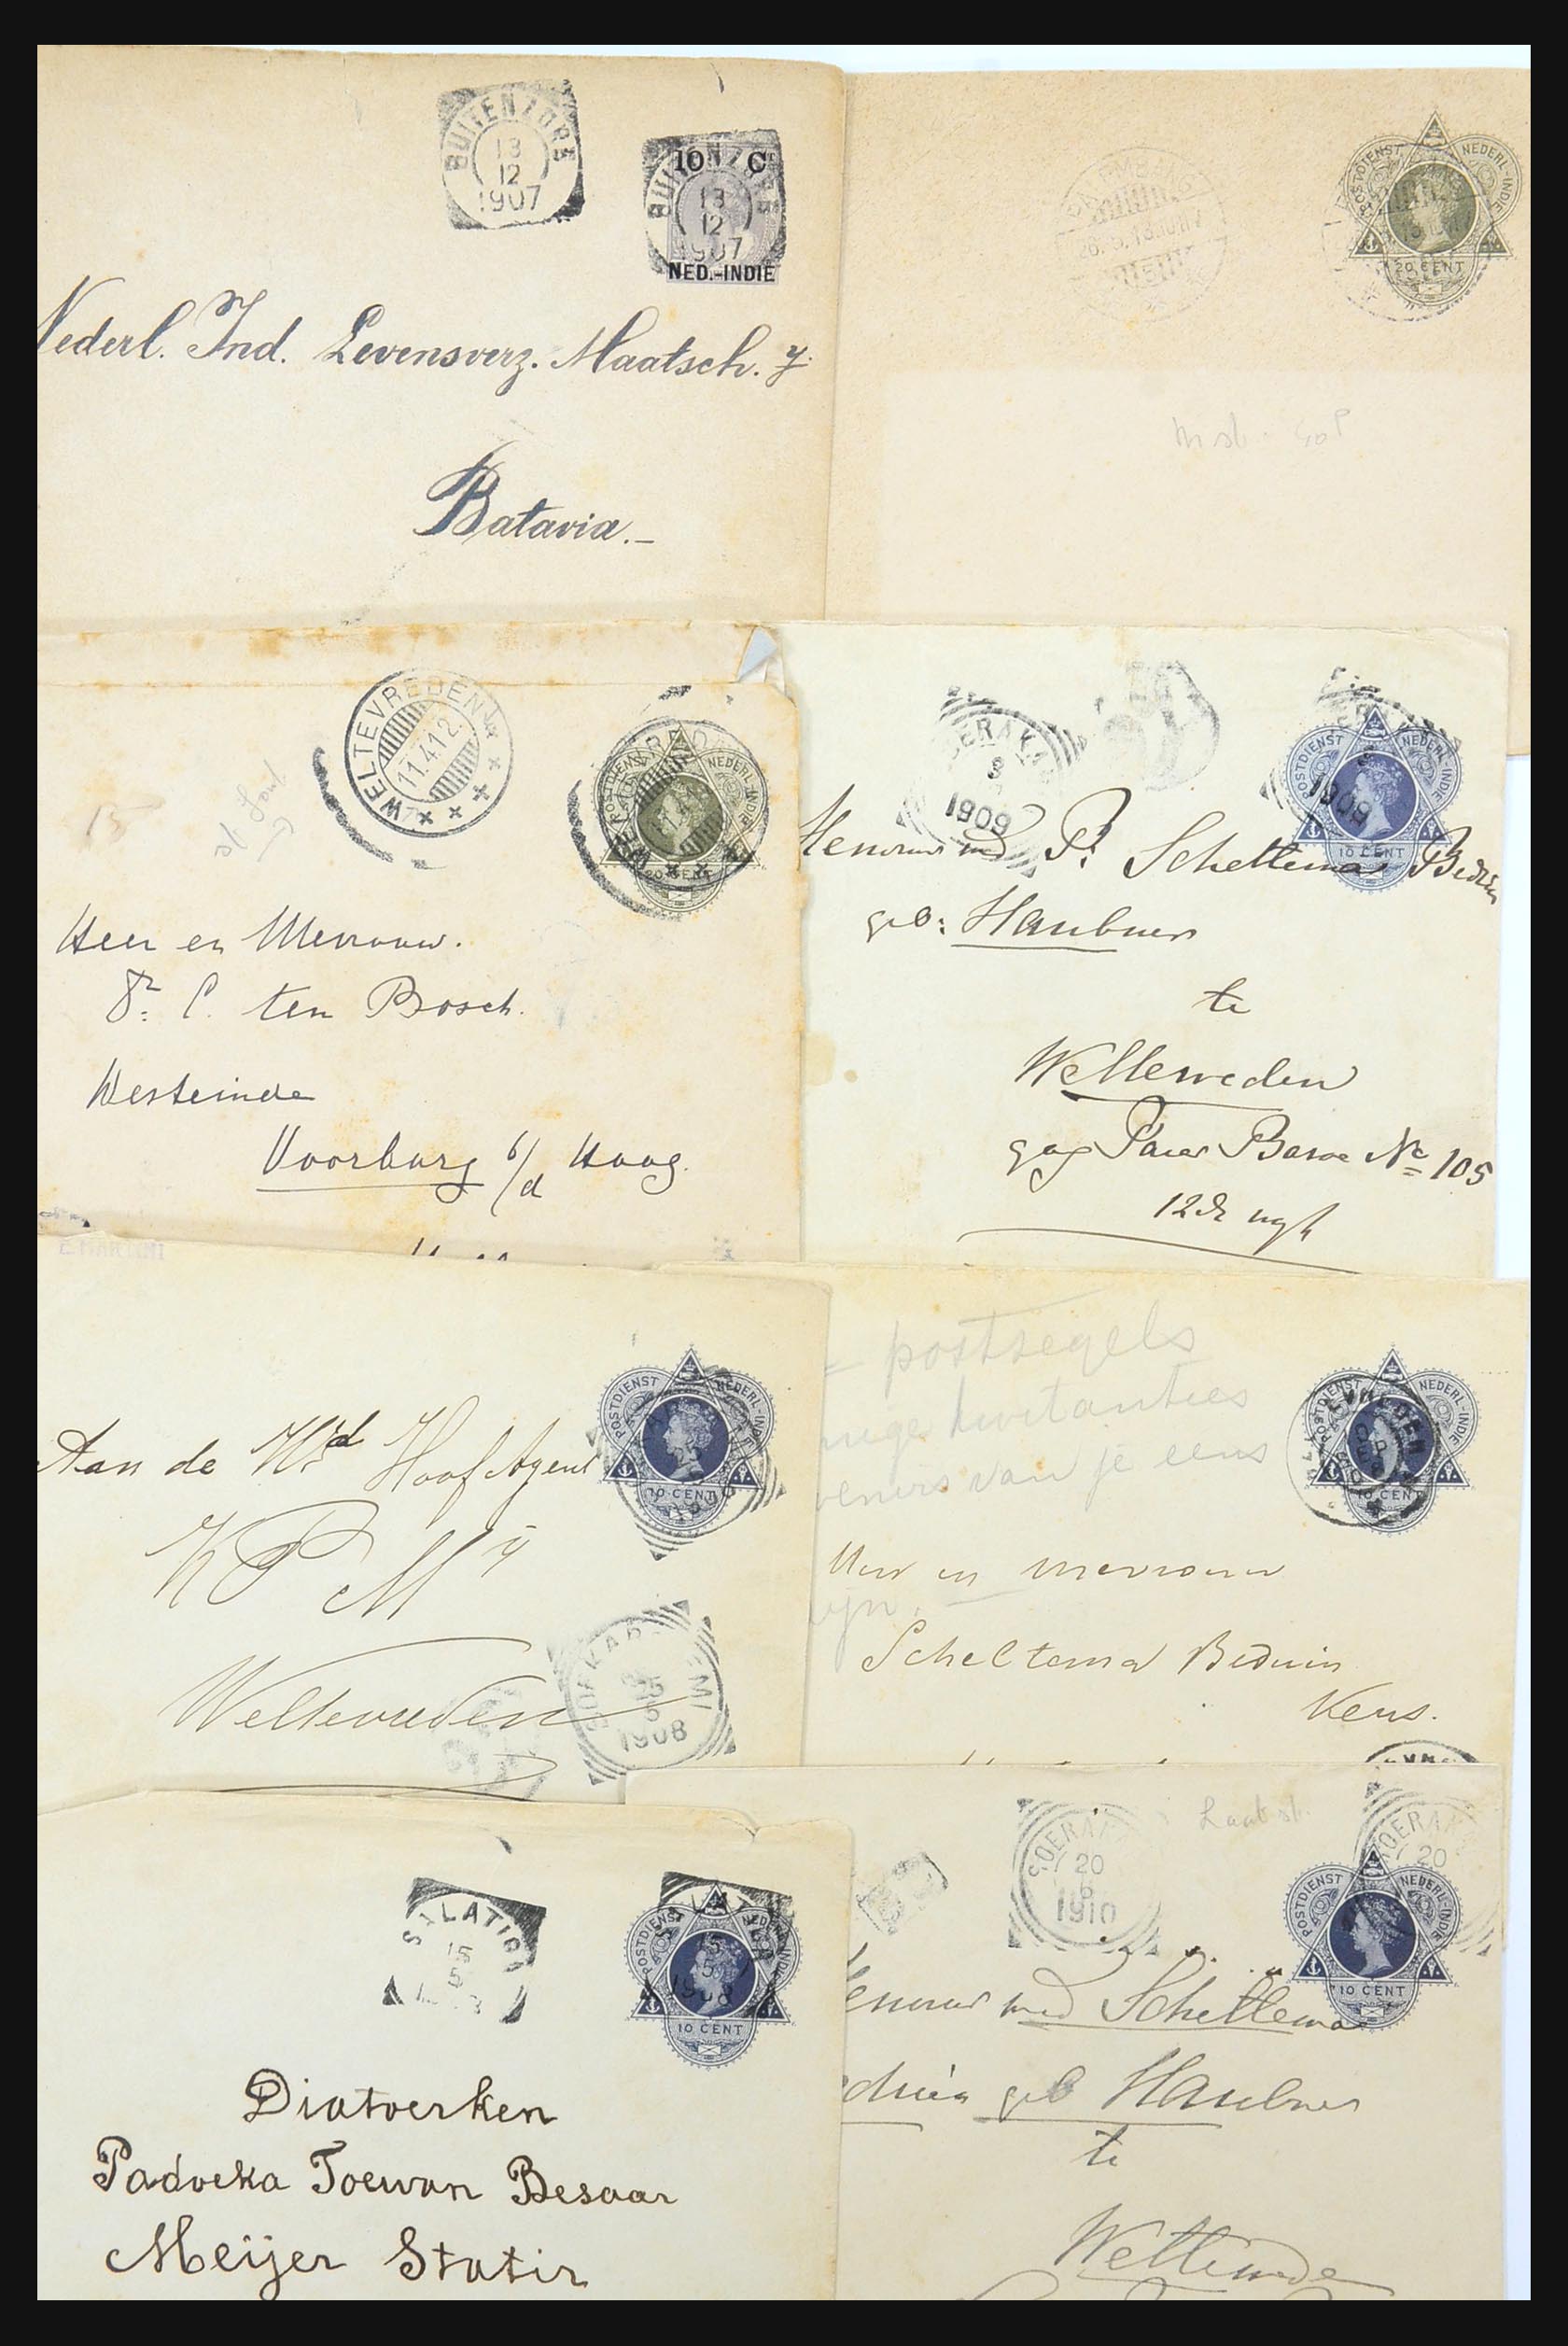 BUITENZORG
13
12
1907
BUITENZORG
10 C
13
12
1907
NED.-INDIË
Nederl. Ind. Levensverz. Maatsch. y.
Batavia.-
POSTDIENST NEDERL-INDIE
20 CENT
WELTEVREDEN
11.4.12.
POSTDIENST NEDERL-INDIE
20 CENT
15
Heer en Mevrouw.
C. ten Bosch.
Westeinde
Voorburg b/d Haag.
E. MARTINI
1909
POSTDIENST NEDERL-INDIE
10 CENT
Mevrouw wed P. Scheltema Beduin
geb: Haubner
te
Weltevreden
gag Pasar Baroe No 105
POSTDIENST NEDERL-INDIE
10 CENT
Aan de Wd Hoof Agent
K P M ij
Weltevreden
SOEKABOEMI
25
5
1908
= postzegels
kwitanties
van je eens
POSTDIENST NEDERL-INDIE
10 CENT
Heer en mevrouw
Scheltema Beduin
Kens.
SALATIGA
15
5
POSTDIENST NEDERL-INDIE
15
5
1908
10 CENT
Diatoerken
Padoeka Toewan Besaar
Meijer Statir
SOERAKARTA
20
6
1910
SOERAKARTA
20
POSTDIENST NEDERL-INDIE
10 CENT
Mevrouw wed Scheltema
Beduin geb Haubner
te
Weltevrede